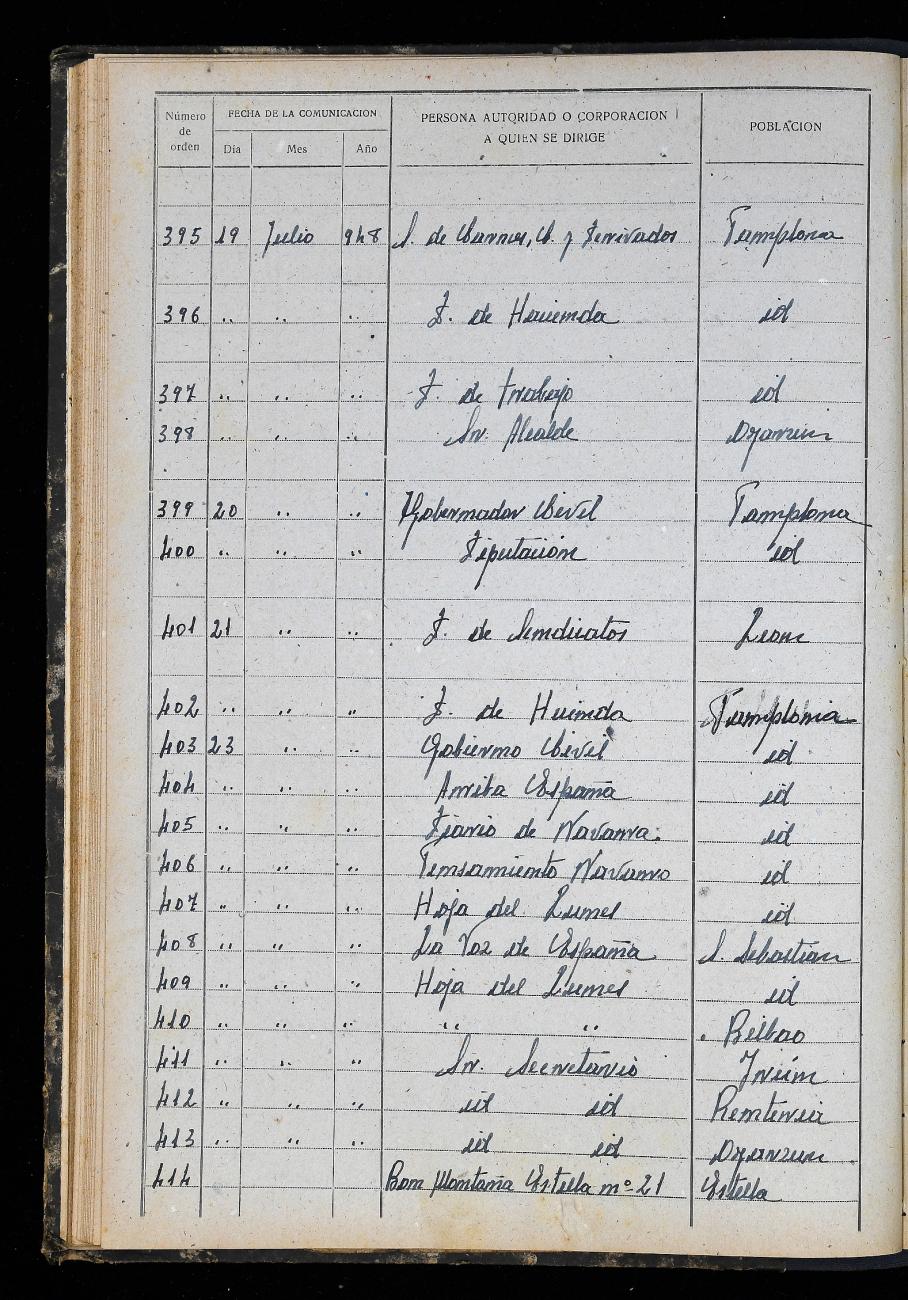 Número de orden FECHA DE LA COMUNICACION Día Mes Año PERSONA AUTORIDAD O CORPORACION A QUIEN SE DIRIGE POBLACION
395 19 Julio 948 S. de Carnes, C. y Derivados Pamplona
396 .. .. .. D. de Hacienda id
397 .. .. .. D. de trabajo id
398 .. .. .. Sr. Alcalde Oyarzun
399 20 .. .. Gobernador Civil Pamplona
400 .. .. .. Diputación id
401 21 .. .. D. de Sindicatos Leon
402 .. .. .. D. de Hacienda Pamplona
403 23 .. .. Gobierno Civil id
404 .. .. .. Arriba España id
405 .. .. .. Diario de Navarra. id
406 .. .. .. Pensamiento Navarro id
407 .. .. .. Hoja del Lunes id
408 .. .. .. La Voz de España S. Sebastian
409 .. .. .. Hoja del Lunes id
410 .. .. .. .. .. Bilbao
411 .. .. .. Sr. Secretario Irún
412 .. .. .. id id Renteria
413 .. .. .. id id Oyarzun
414 Bon Montaña Estella nº 21 Estella